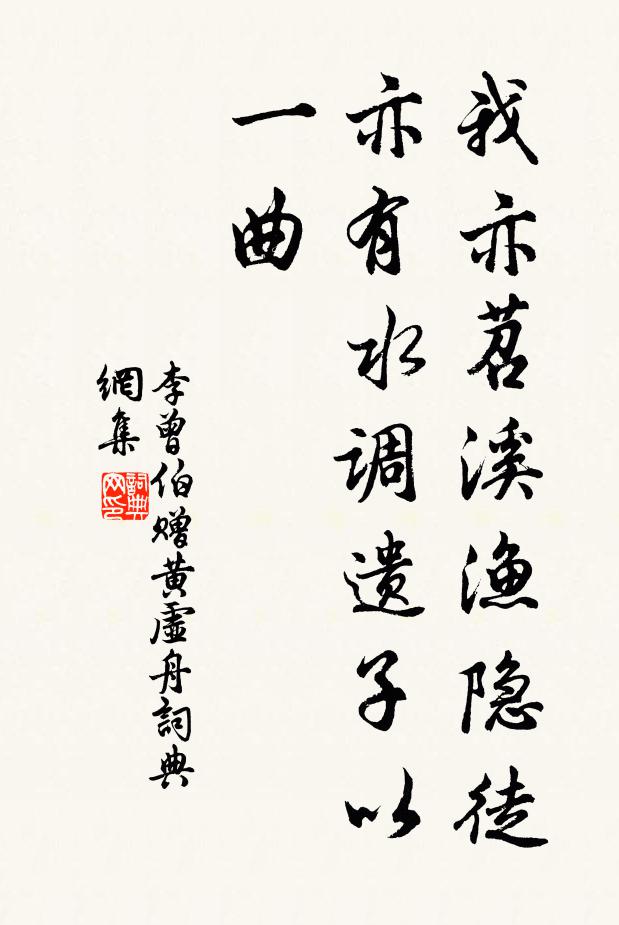 我亦苕溪渔隐徒
亦有水调遗子以
一曲
李曾伯赠黄虛舟詞典
網集
詞典网印